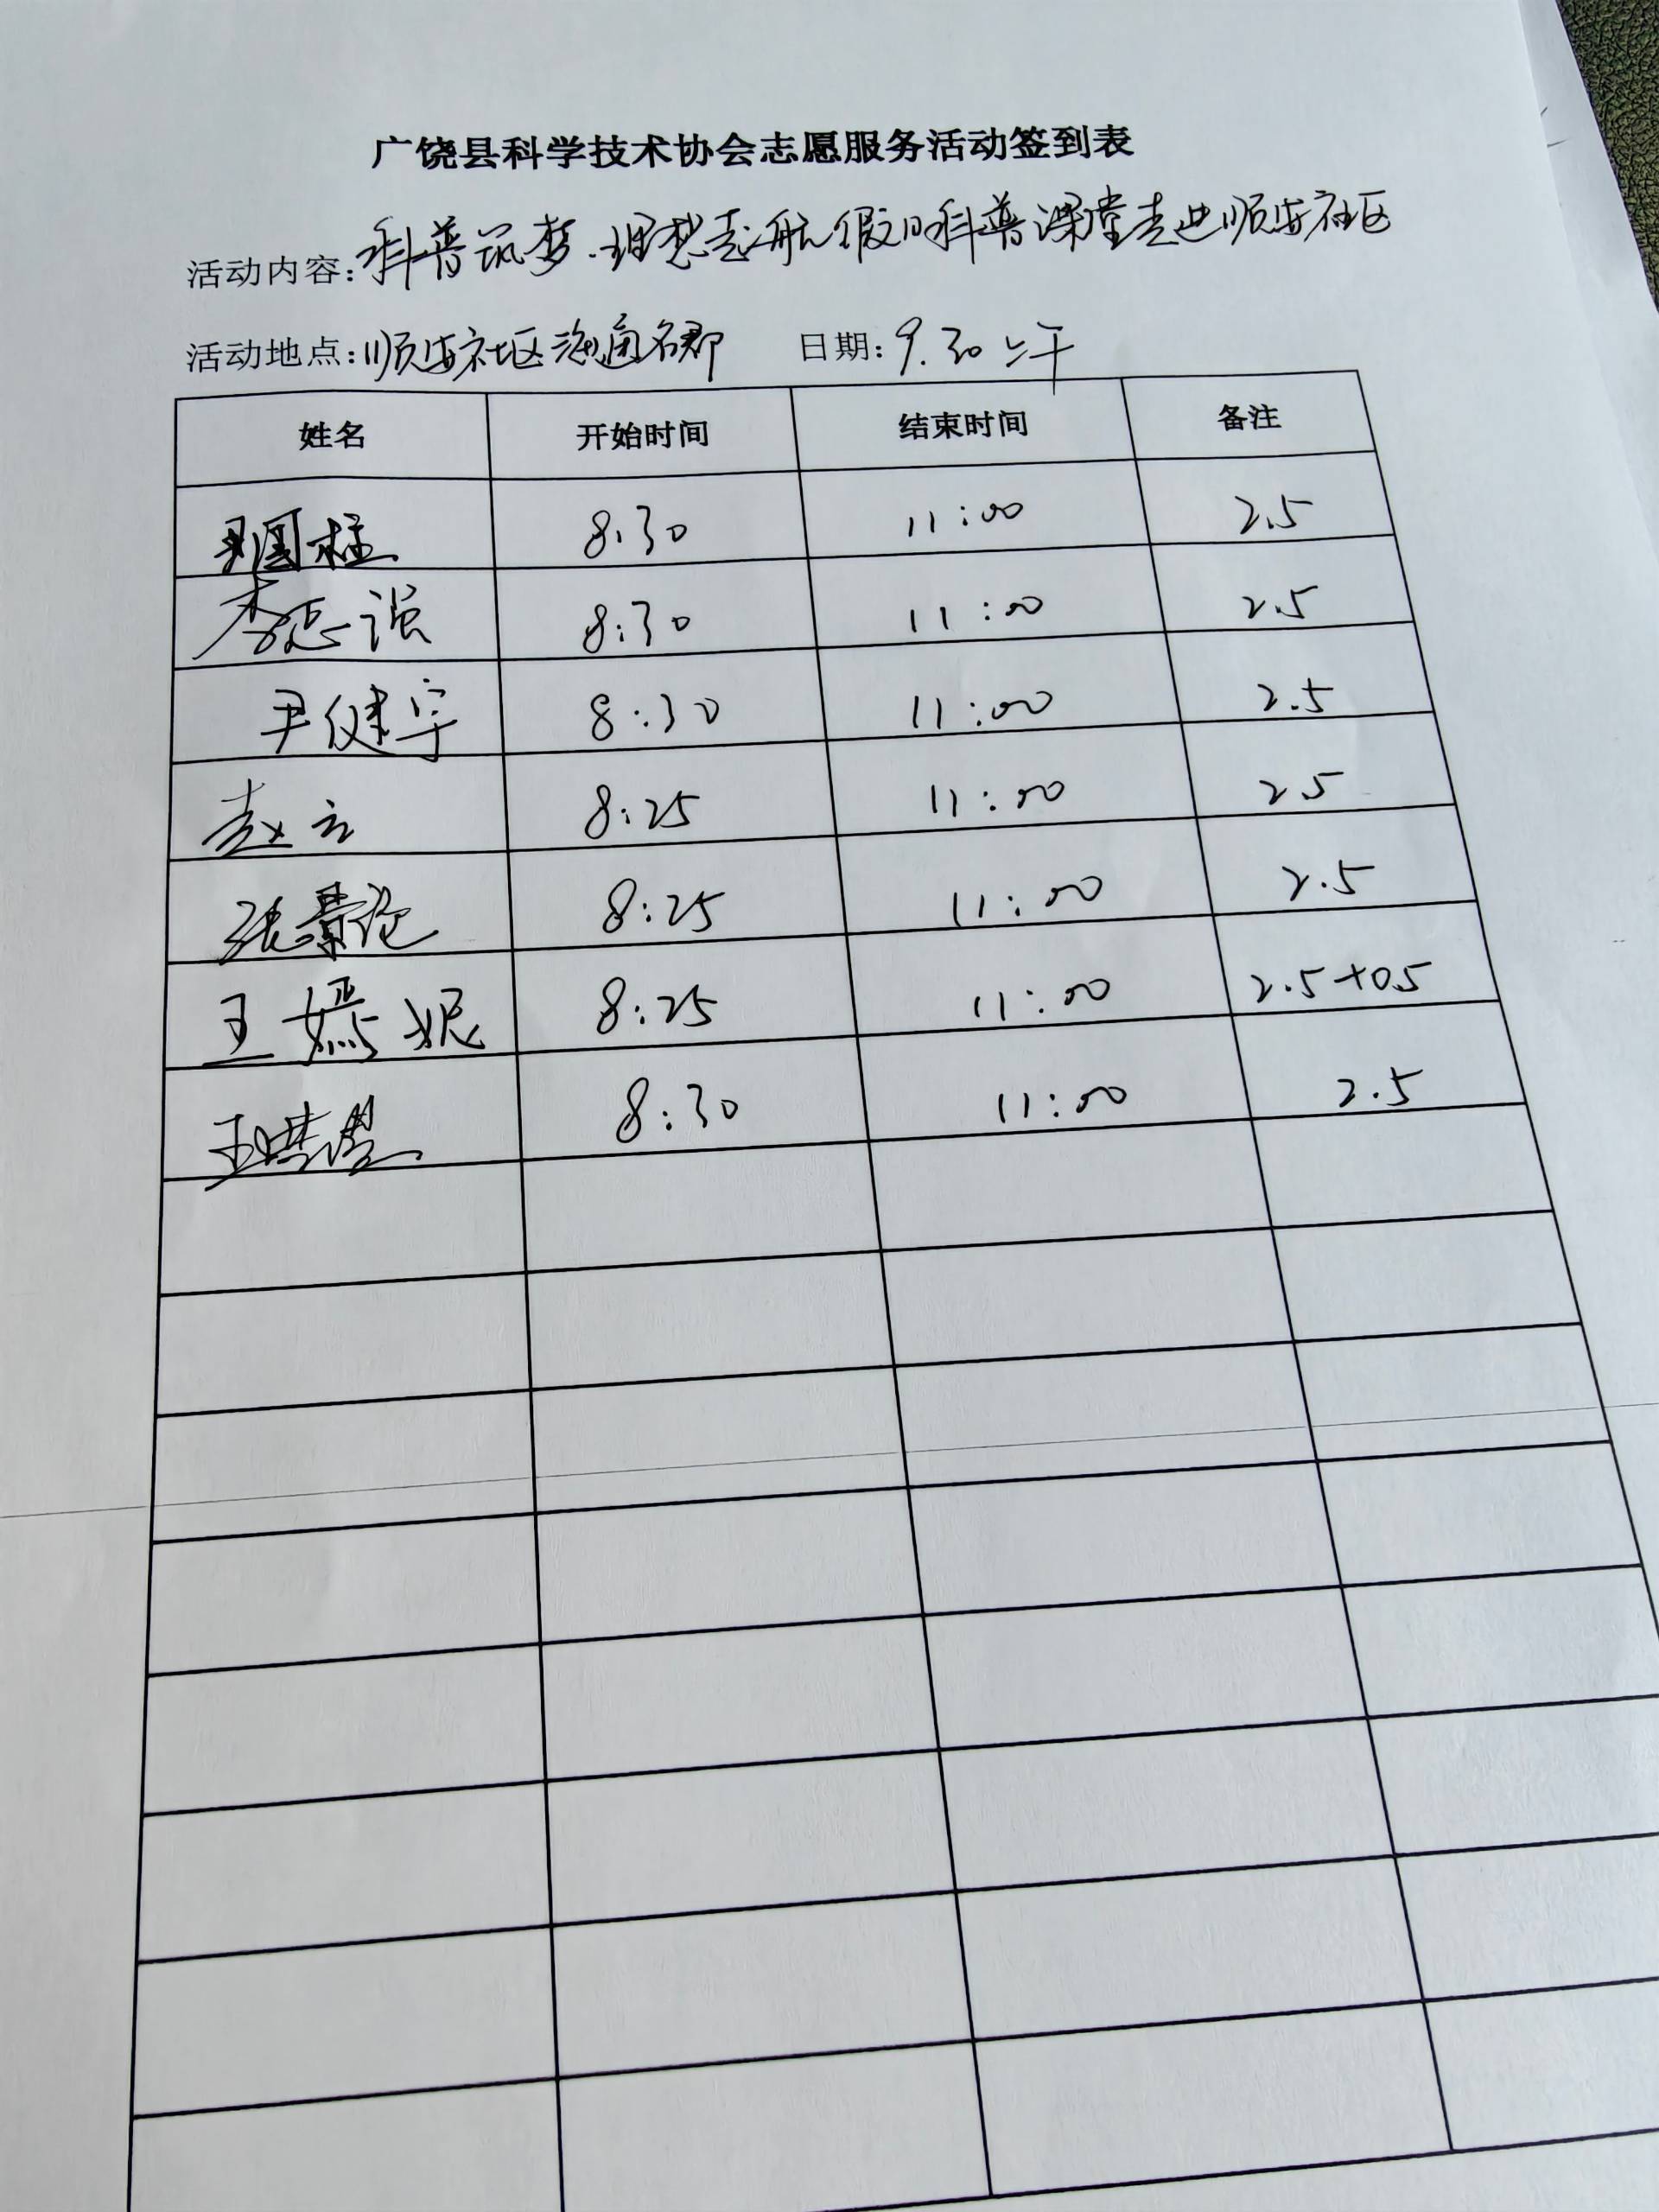 广饶县科学技术协会志愿服务活动签到表
活动内容:科普筑梦.理想起航假日科普课堂走进顺安社区
活动地点:顺安社区海通名郡 日期:9.30上午
姓名 开始时间 结束时间 备注
8:30 11:00 2.5
李志强 8:30 11:00 2.5
尹健宇 8:30 11:00 2.5
赵云 8:25 11:00 2.5
张景伦 8:25 11:00 2.5
王嫣妮 8:25 11:00 2.5+0.5
8:30 11:00 2.5